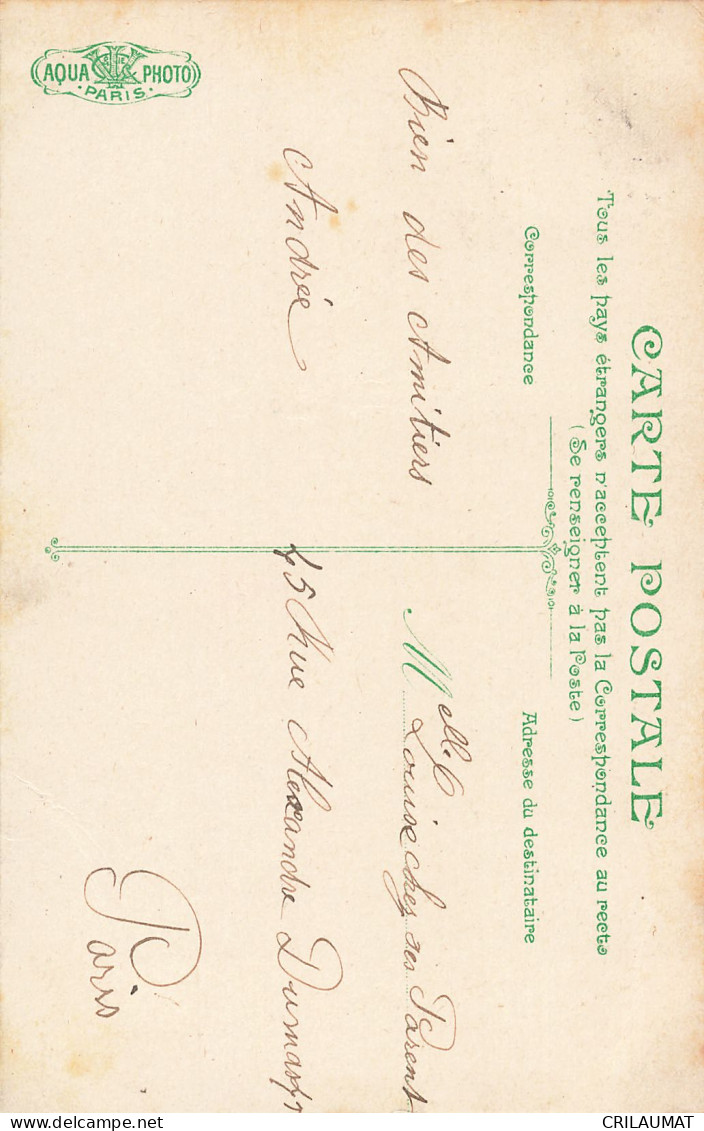 CARTE POSTALE
Tous les pays étrangers n'acceptent pas la Correspondance au recto
(Se renseigner à la Poste)
Correspondance
Adresse du destinataire
Bien des Amitiers
Andrée
Melle Louise chez ses Parent
45 Rue Alexandre Dumas
Paris
AQUA PHOTO
PARIS
CRILAUMAT